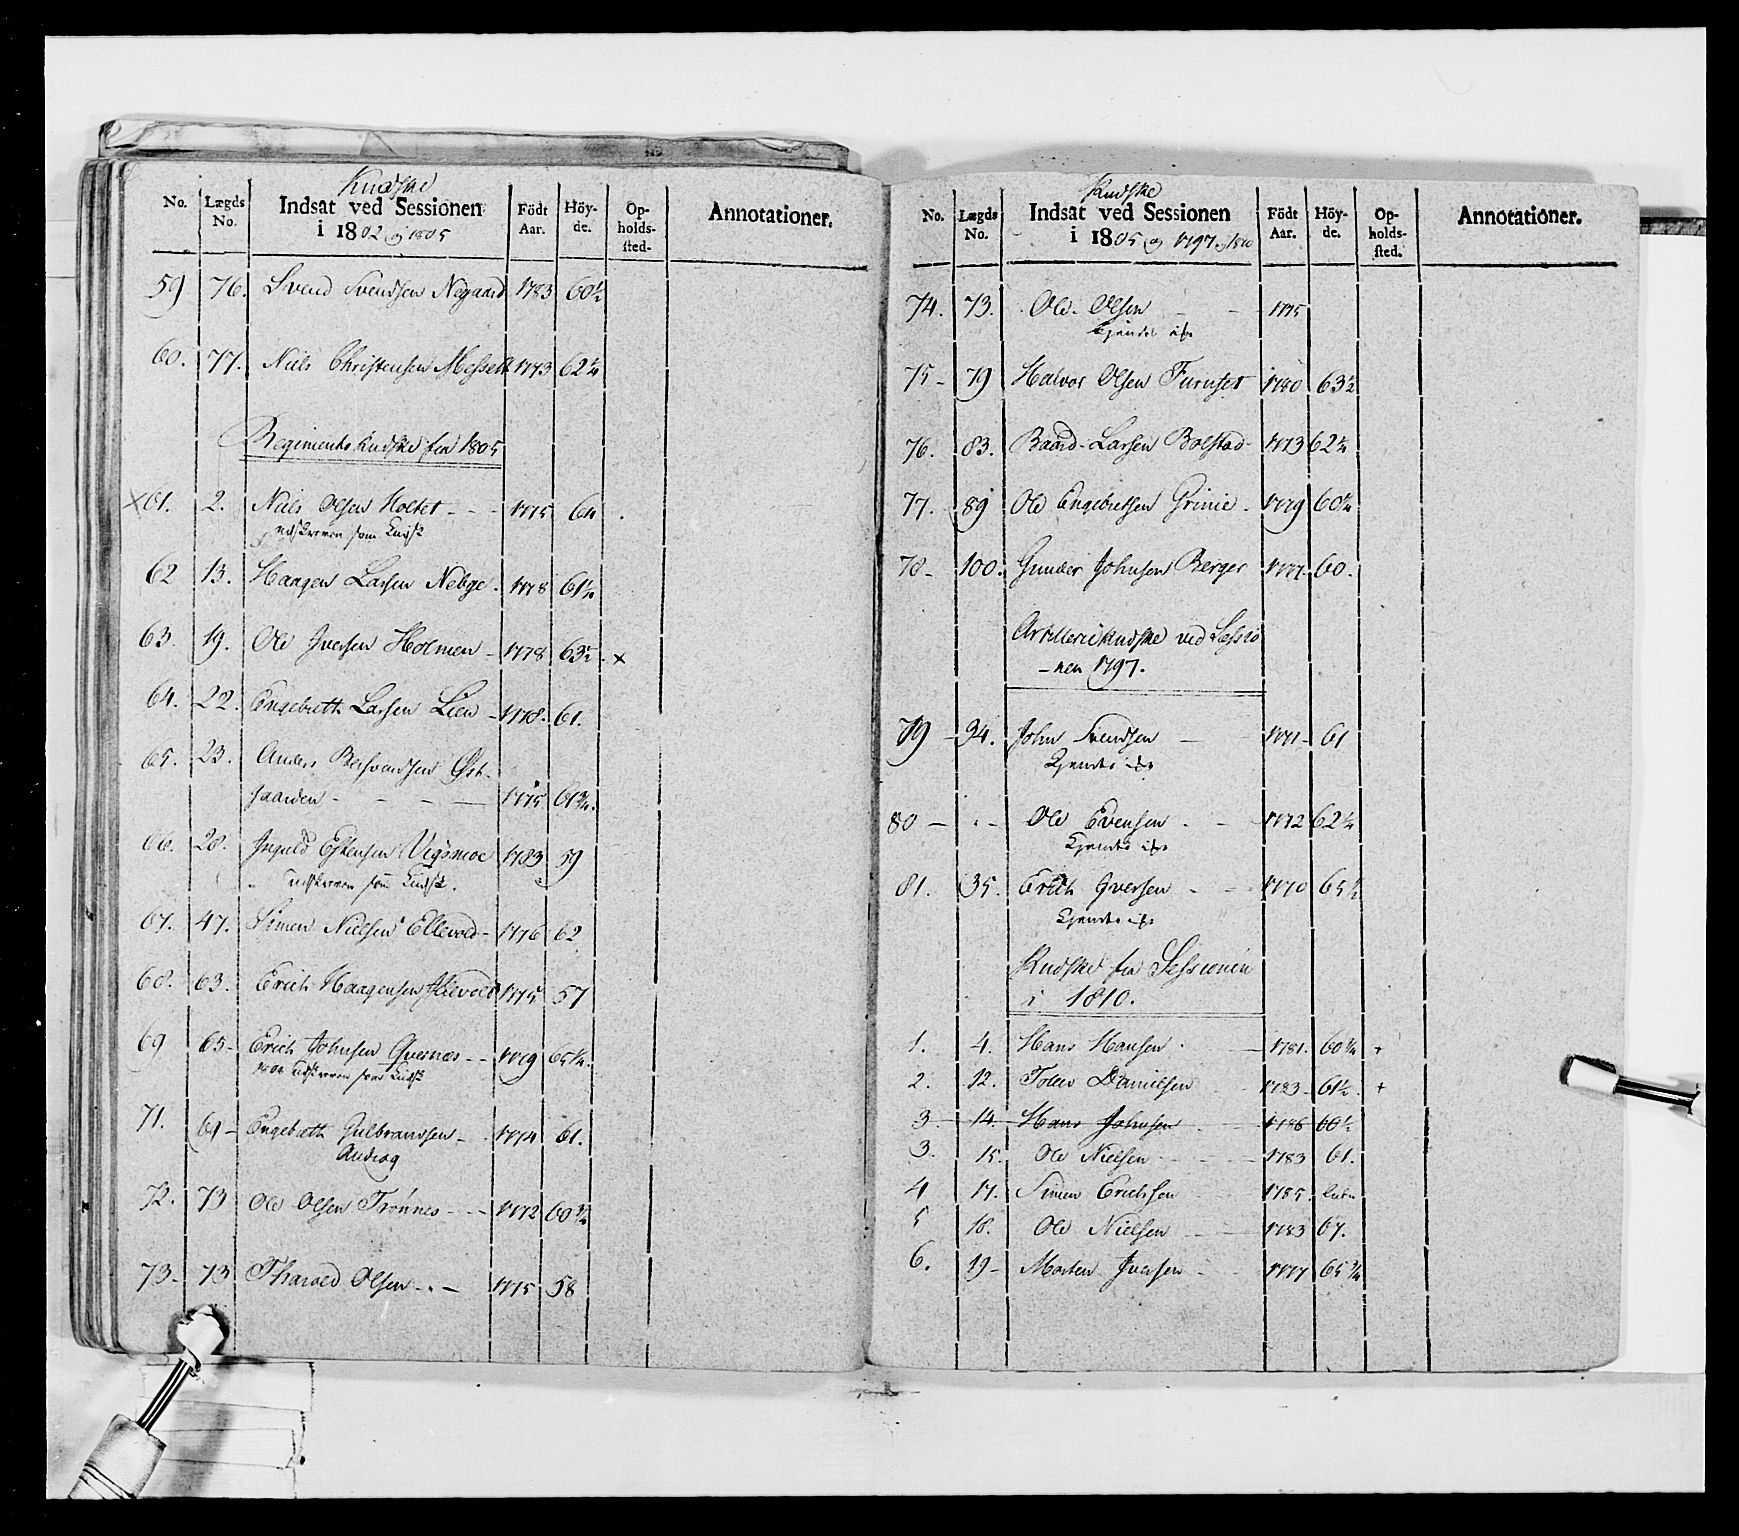 Kudske
No. Lægds No. Indsat ved Sessionen i 1802 og 1805 Födt Aar. Höyde. Opholdssted. Annotationer.
59 76. Svend Svendsen Negaard 1783 60½
60. 77. Niels Christensen Messelt 1773 62¼
Regiments Kudske fra 1805
×61. 2. Niels Olsen Holtet - - - 1775 64
udskreven som Kudsk
62 13. Haagen Larsen Nebye. 1778 61¼
63. 19. Ole Iversen Holmen - 1778 63½ ×
64. 22. Engebreth Larsen Lien - 1778. 61.
65. 23. Anders Øst-
gaarden - - - - 1775 61¾.
66. 28. Inguld Estensen Vigsmoe 1783 59
udskreven som Kudsk.
67. 47. Simen Nielsen Ellevold - 1776 62
68. 63. Erich Haagensen 1775 57
69 65 - Erich Johnsen Qvernæs - - 1779 65¼.
udskreven som Kudsk
71. 69 - Engebreth Gulbrandsen - 1774 61.
Androg
72. 73 Ole Olsen Trønnes - - - 1772 60¾
73 - 73 Tharald Olsen - . - 1775 58
Kudske
No. Lægds No. Indsat ved Sessionen i 1805 og 1797. og 1810 Födt Aar. Höyde. Opholdssted. Annotationer.
74. 73. Ole Olsen - - 1775
kjendes
75 - 79 Halvor Olsen Furuset 1780 63½
76. 83. Baard Larsen Bolstad - 1773 62¼
77. 89 Ole Engebretsen Grinie. 1779 60¼
78 - 100. Gunder Johnsen Berger 1777 - 60.
Artillerikudske ved Sessio
-nen 1797.
79 - 34. John Svendsen - 1771 - 61
Kjendes
80 - . - Ole Evensen . - 1772 62¼
Kjendes
81. 35. Erich Iversen - - 1770 65½
Kjendes
Kudske fra Sessionen
i 1810.
1. 4. Hans Hansen . - 1781. 60¾ +
2. 12. Tolev Danielsen 1783 - 61½. +
3 - 14. Hans Johnsen 1786 60½
3. 15. Ole Nielsen - - - 1783 61.
4 17. Simen Erichsen 1785.
5 18. Ole Nielsen - - 1783 67.
6. 19 - Morten Iversen - - 1777 65¾